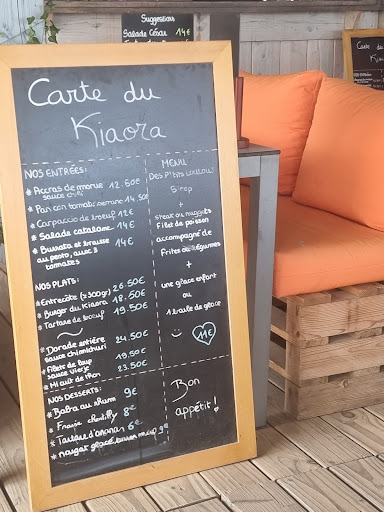 Suggestions
Salade César 14€
Carte du
Carte du
Kiaora
NOS ENTRÉES:
* Accras de morue 12.50€
sauce chili
* Pan con tomate 14.50€
* Carpaccio de boeuf 12€
* Salade catalane 14€
* Burrata et brousse 14€
au pesto, aux 3
tomates
NOS PLATS:
* Entrecôte (≥300gr) 26.50€
* Burger du Kiaora 18.50€
* Tartare de boeuf 19.50€
* Dorade entière 24.50€
sauce chimichuri
* Filets de loup 19,50€
sauce vierge
* Mi cuit de thon 23.50€
NOS DESSERTS:
* Baba au rhum 9€
* Fraise chantilly 8€
* Tartare d'ananas 6€
* nougat glacé 9€
MENU
DES P'TITS LOULOUS
Sirop
+
Steak ou nuggets
Filet de poisson
accompagné de
Frites ou légumes
+
une glace enfant
ou
1 boule de glace
:) 11€
Bon
appétit!